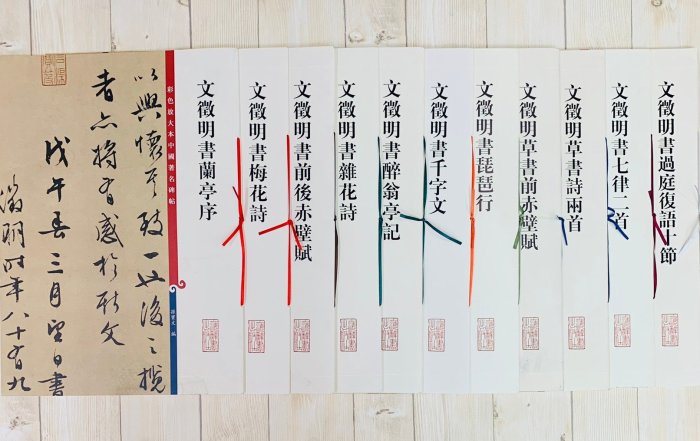 以興懷其致一也後之攬
者亦將有感於斯文
戊午春三月望日書
徵明時年八十有九
彩色放大本中國著名碑帖
孫寶文 編
文徵明書蘭亭序
文徵明書梅花詩
文徵明書前後赤壁賦
文徵明書雜花詩
文徵明書醉翁亭記
文徵明書千字文
文徵明書琵琶行
文徵明草書前赤壁賦
文徵明草書詩兩首
文徵明書七律二首
文徵明書過庭復語十節